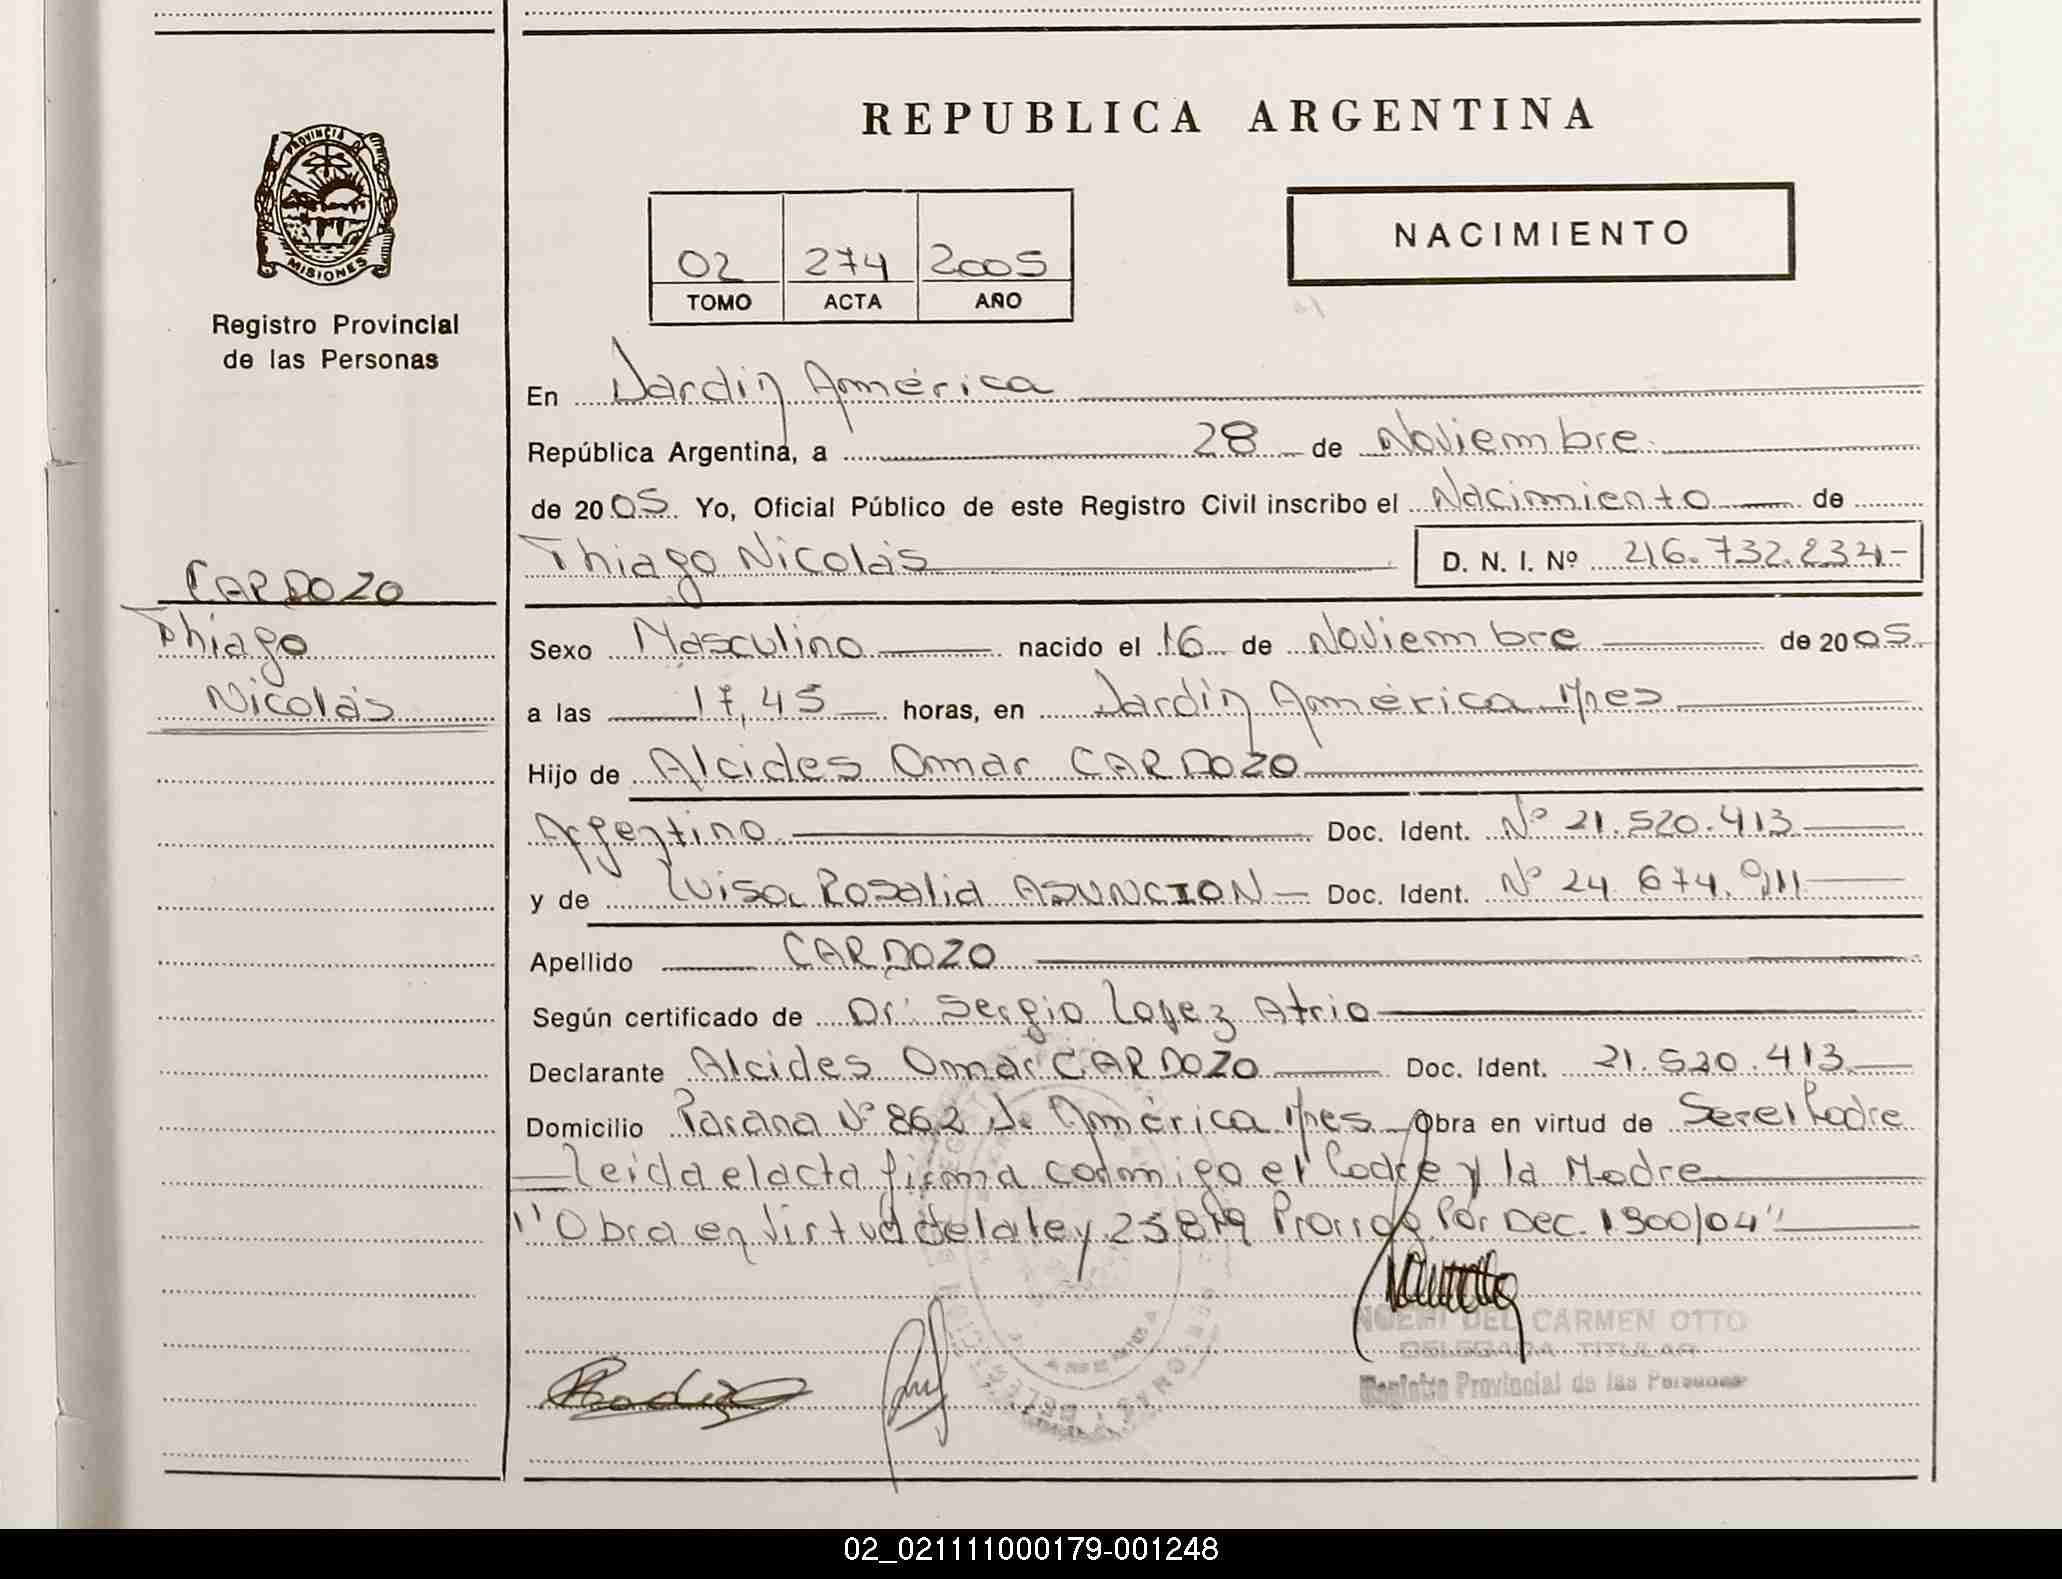 REPUBLICA ARGENTINA
PROVINCIA DE
MISIONES
Registro Provincial
de las Personas
02 274 2005
TOMO ACTA AÑO
NACIMIENTO
En Jardín América
República Argentina, a 28 de Noviembre
de 2005 Yo, Oficial Público de este Registro Civil inscribo el Nacimiento de
Thiago Nicolás D. N. I. Nº
CARDOZO
Thiago
Nicolás
Sexo Masculino nacido el 16 de Noviembre de 2005
a las 17,45 horas, en Jardín América Mnes
Hijo de Alcides Omar CARDOZO
Argentino Doc. Ident. Nº 21.520.413
y de Luisa Rosalia ASUNCION Doc. Ident. Nº 24.674.911
Apellido CARDOZO
Según certificado de Dr. Sergio Lopez Atrio
Declarante Alcides Omar CARDOZO Doc. Ident. 21.520.413
Domicilio Parana Nº 862 J. América Mnes Obra en virtud de Ser el Padre
Leida el acta firma conmigo el Padre y la Madre
"Obra en virtud de la ley 25819 Prorrog. Por Dec. 1900/04"
NOEMI DEL CARMEN OTTO
DELEGADA TITULAR
Registro Provincial de las Personas
02_021111000179-001248